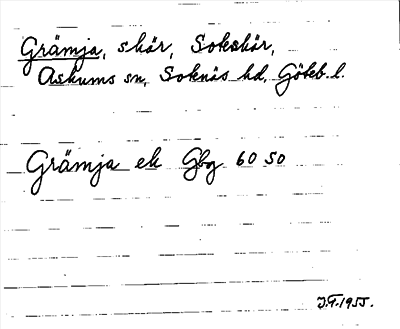 Grämja, skär, Sokskär,
Askums sn, Soknäs hd, Göteb. l.
Grämja ek Gbg 60 50
J.F. 1955.